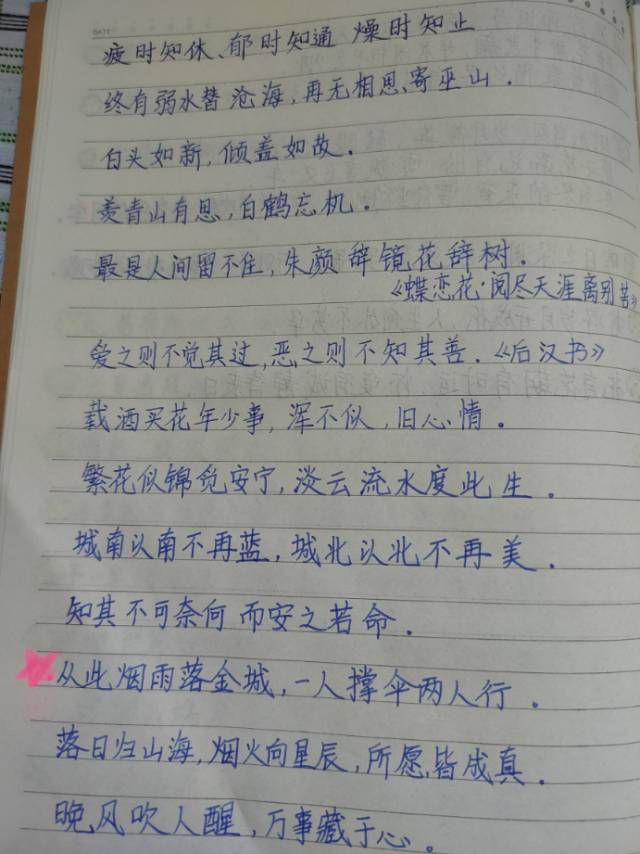 疲时知休、郁时知通 燥时知止
终有弱水替沧海,再无相思、寄巫山.
白头如新,倾盖如故.
羡青山有思,白鹤忘机.
最是人间留不住,朱颜辞镜花辞树.
《蝶恋花·阅尽天涯离别苦》
爱之则不觉其过,恶之则不知其善.《后汉书》
载酒买花年少事,浑不似,旧心情。
繁花似锦觅安宁,淡云流水度此生.
城南以南不再蓝,城北以北不再美.
知其不可奈何而安之若命.
从此烟雨落金城,一人撑伞两人行.
落日归山海,烟火向星辰,所愿皆成真.
晚风吹人醒,万事藏于心。